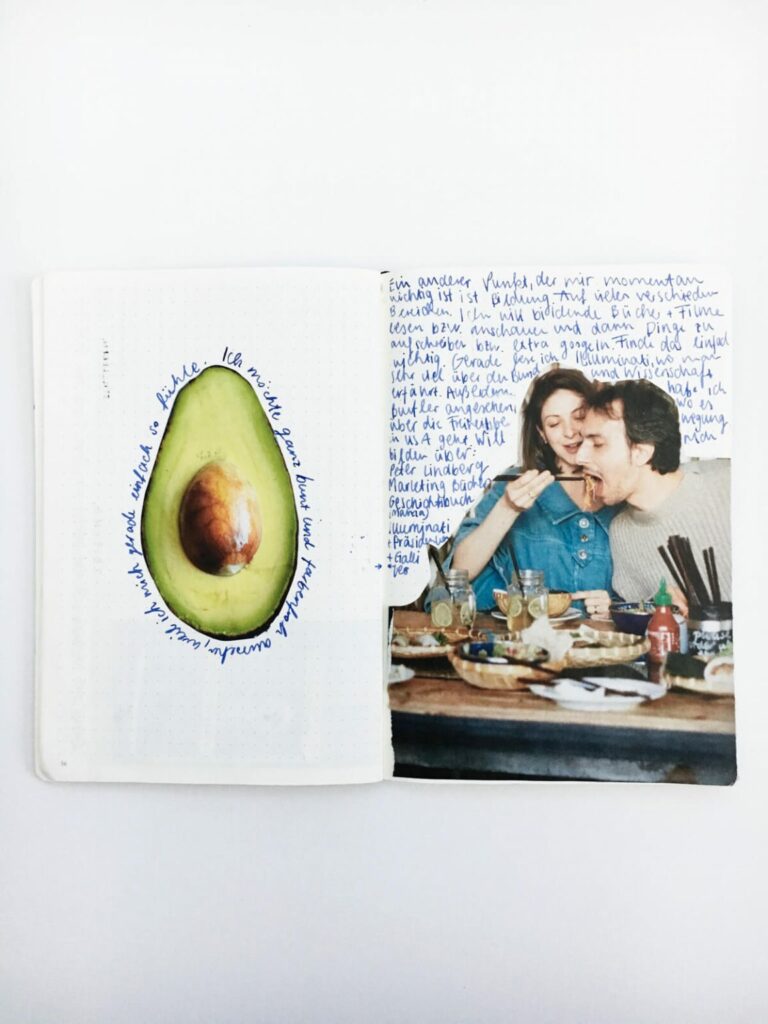 Ich möchte ganz bunt und farbenfroh aussehn, weil ich mich gerade einfach so fühle.
Ein anderer Punkt, der mir momentan
wichtig ist ist Bildung. Auf vielen verschieden
Bereichen. Ich will bildende Bücher + Filme
lesen bzw. anschauen und dann Dinge zu
aufschreiben bzw. extra googeln. Finde das einfach
wichtig. Gerade lese ich Illuminati, wo man
sehr viel über den Bund und Wissenschaft
erfährt. Außerdem habe ich
Butler angesehen, wo es
über die wegung
in USA geht. Will mich
bilden über:
Peter Lindberg
Marketing Bücher
Geschichtsbuch
(Manga)
Illuminati
+ Galli